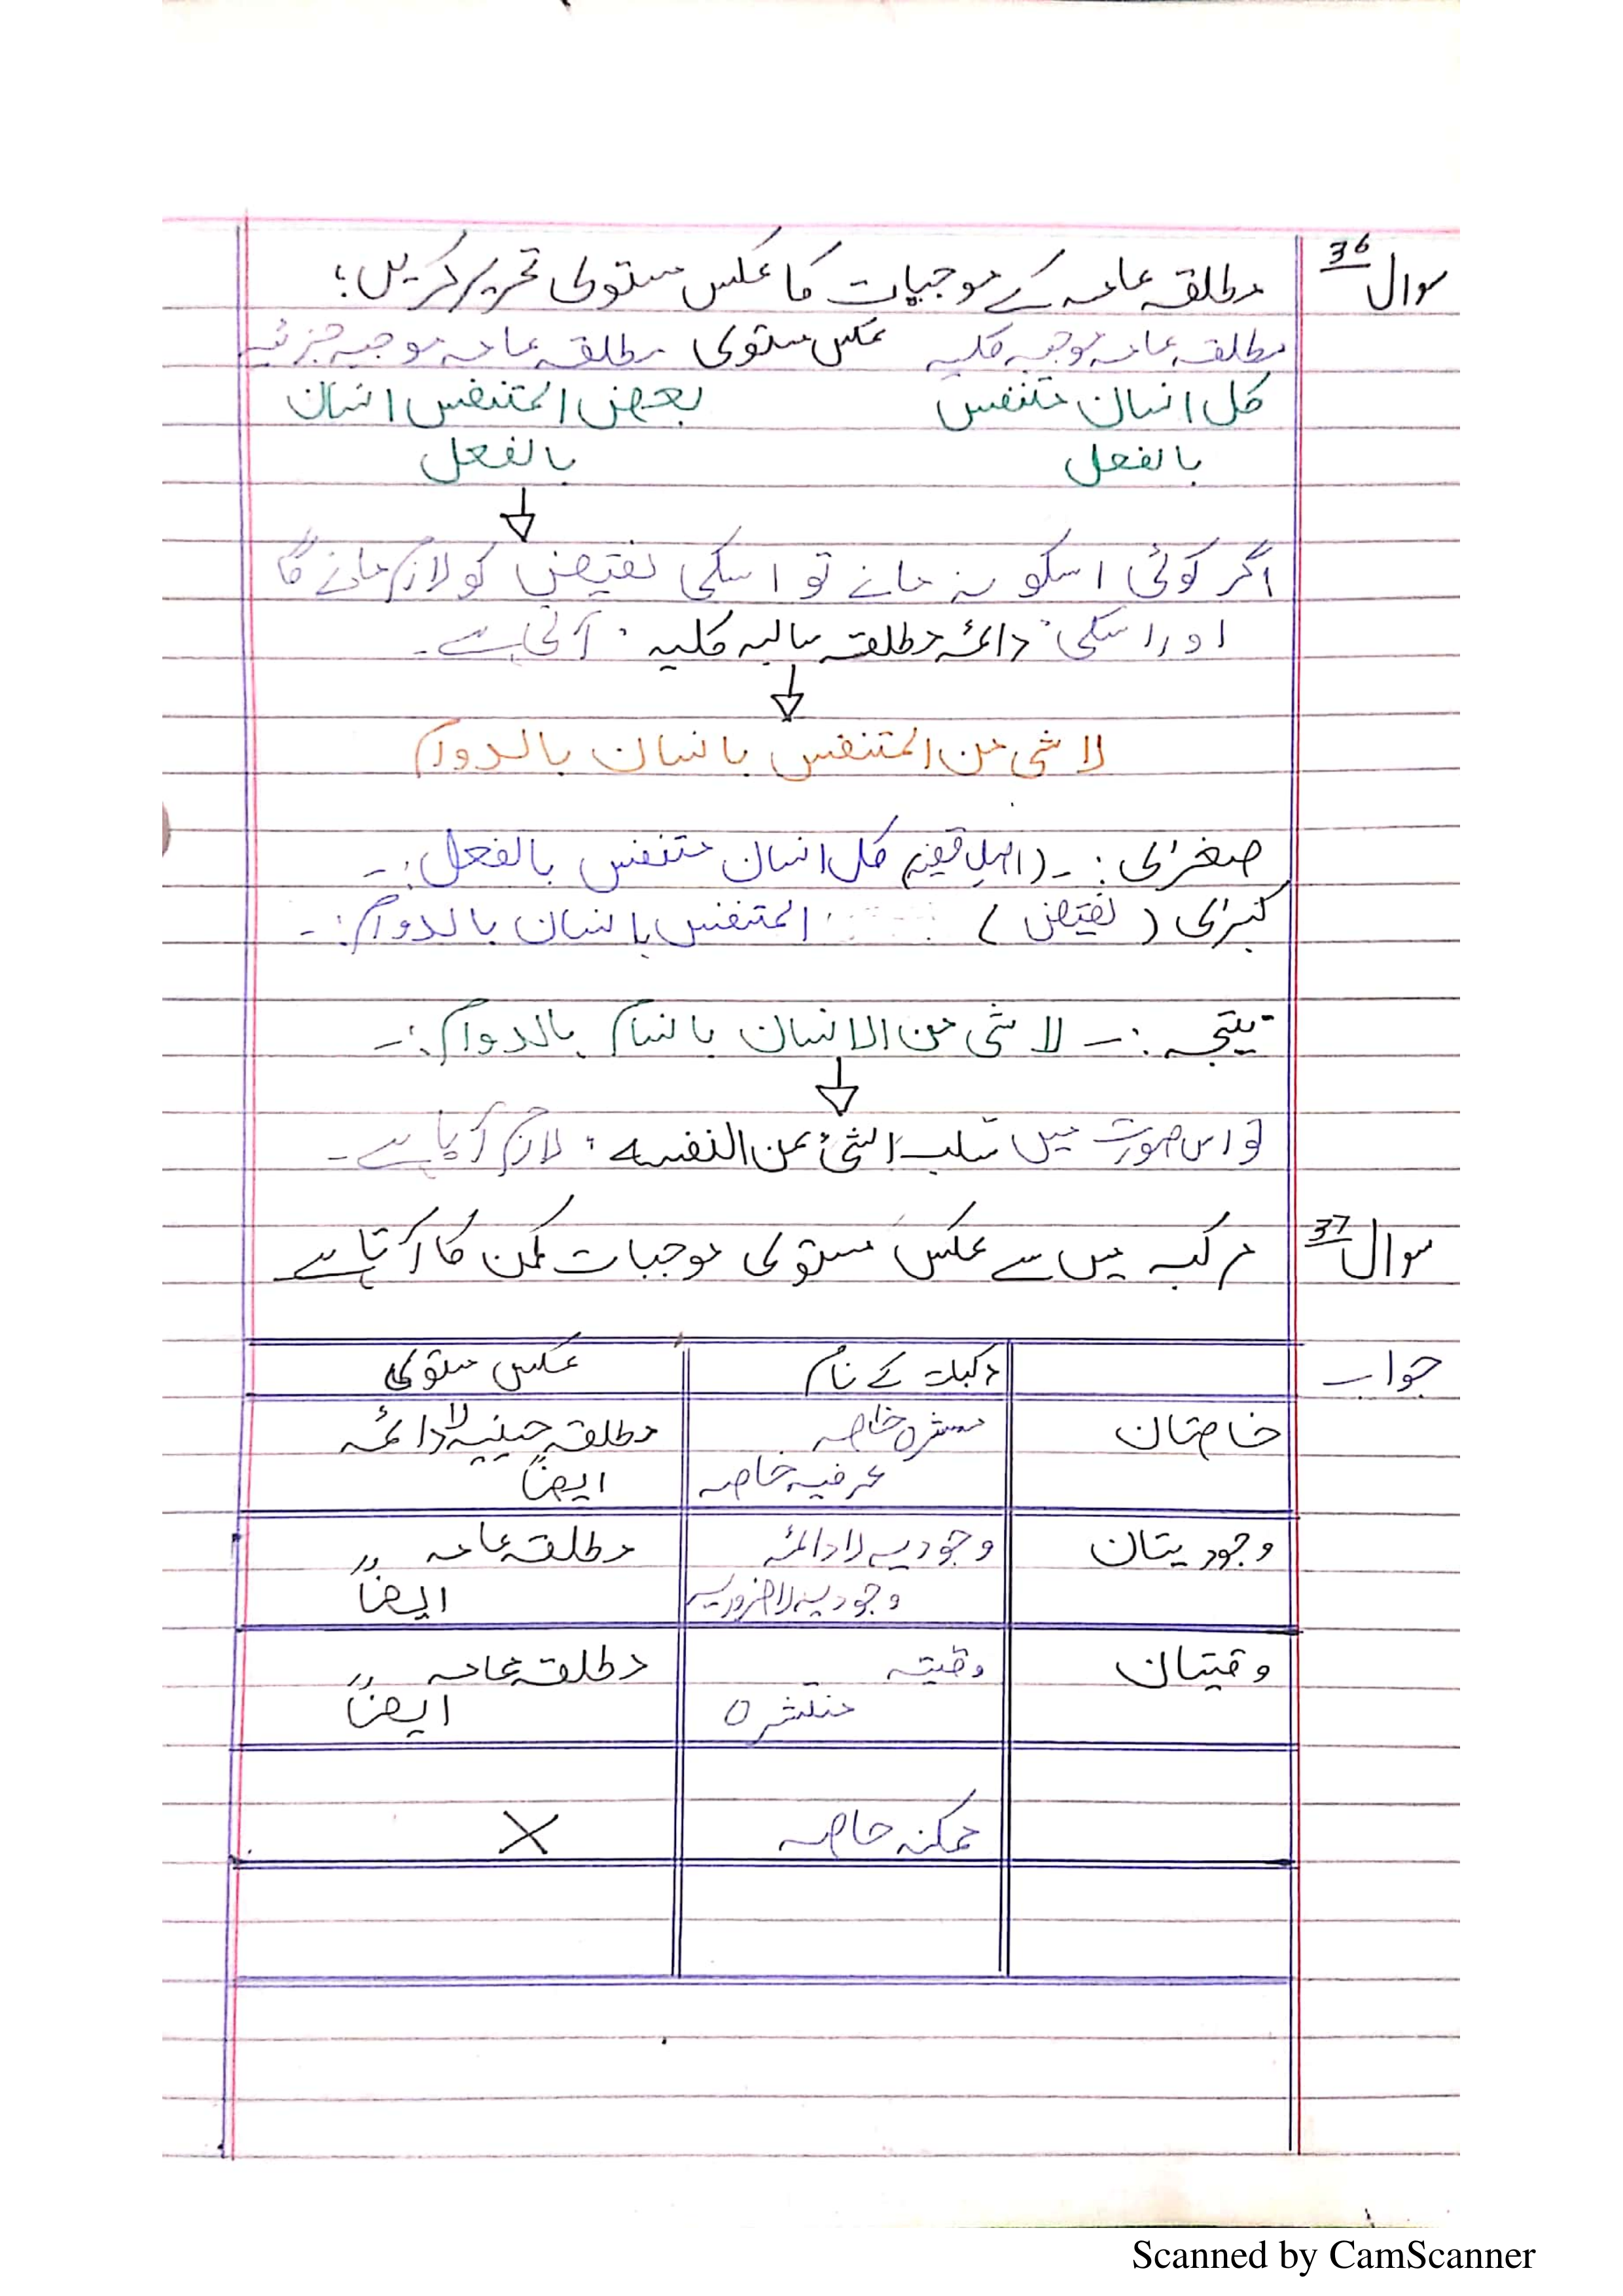 سوال 36
مطلقہ عامہ کے موجبات کا عکس مستوی تحریر کریں؛
مطلقہ عامہ موجبہ کلیہ عکس مستوی مطلقہ عامہ موجبہ جزئیہ
کل انسان متنفس بعض المتنفس انسان
بالفعل بالفعل
اگر کوئی اسکو نہ مانے تو اسکی نقیض کو لازم مانے گا
اور اسکی "دائمہ مطلقہ سالبہ کلیہ" آتی ہے۔
لا شئ من المتنفس بانسان بالدوام
صغرٰی :۔ (اصل قضیہ) کل انسان متنفس بالفعل :۔
کبرٰی (نقیض) المتنفس بانسان بالدوام :۔
نتیجہ :۔ لا شئ من الانسان بالدوام :۔
تو اس صورت میں سلب الشئ عن النفسہ " لازم آتا ہے۔
سوال 37
مرکبہ میں سے عکس مستوی موجبات کن کا آتا ہے
جواب
کے نام عکس مستوی
خاصتان خاصہ مطلقہ حینیہ لا دائمہ
عرفیہ خاصہ ایضاً
وجودیتان وجودیہ لا دائمہ مطلقہ عامہ
وجودیہ لا ضروریہ ایضاً
وقتیتان وقتیہ مطلقہ عامہ
منتشرہ ایضاً
ممکنہ خاصہ X
Scanned by CamScanner